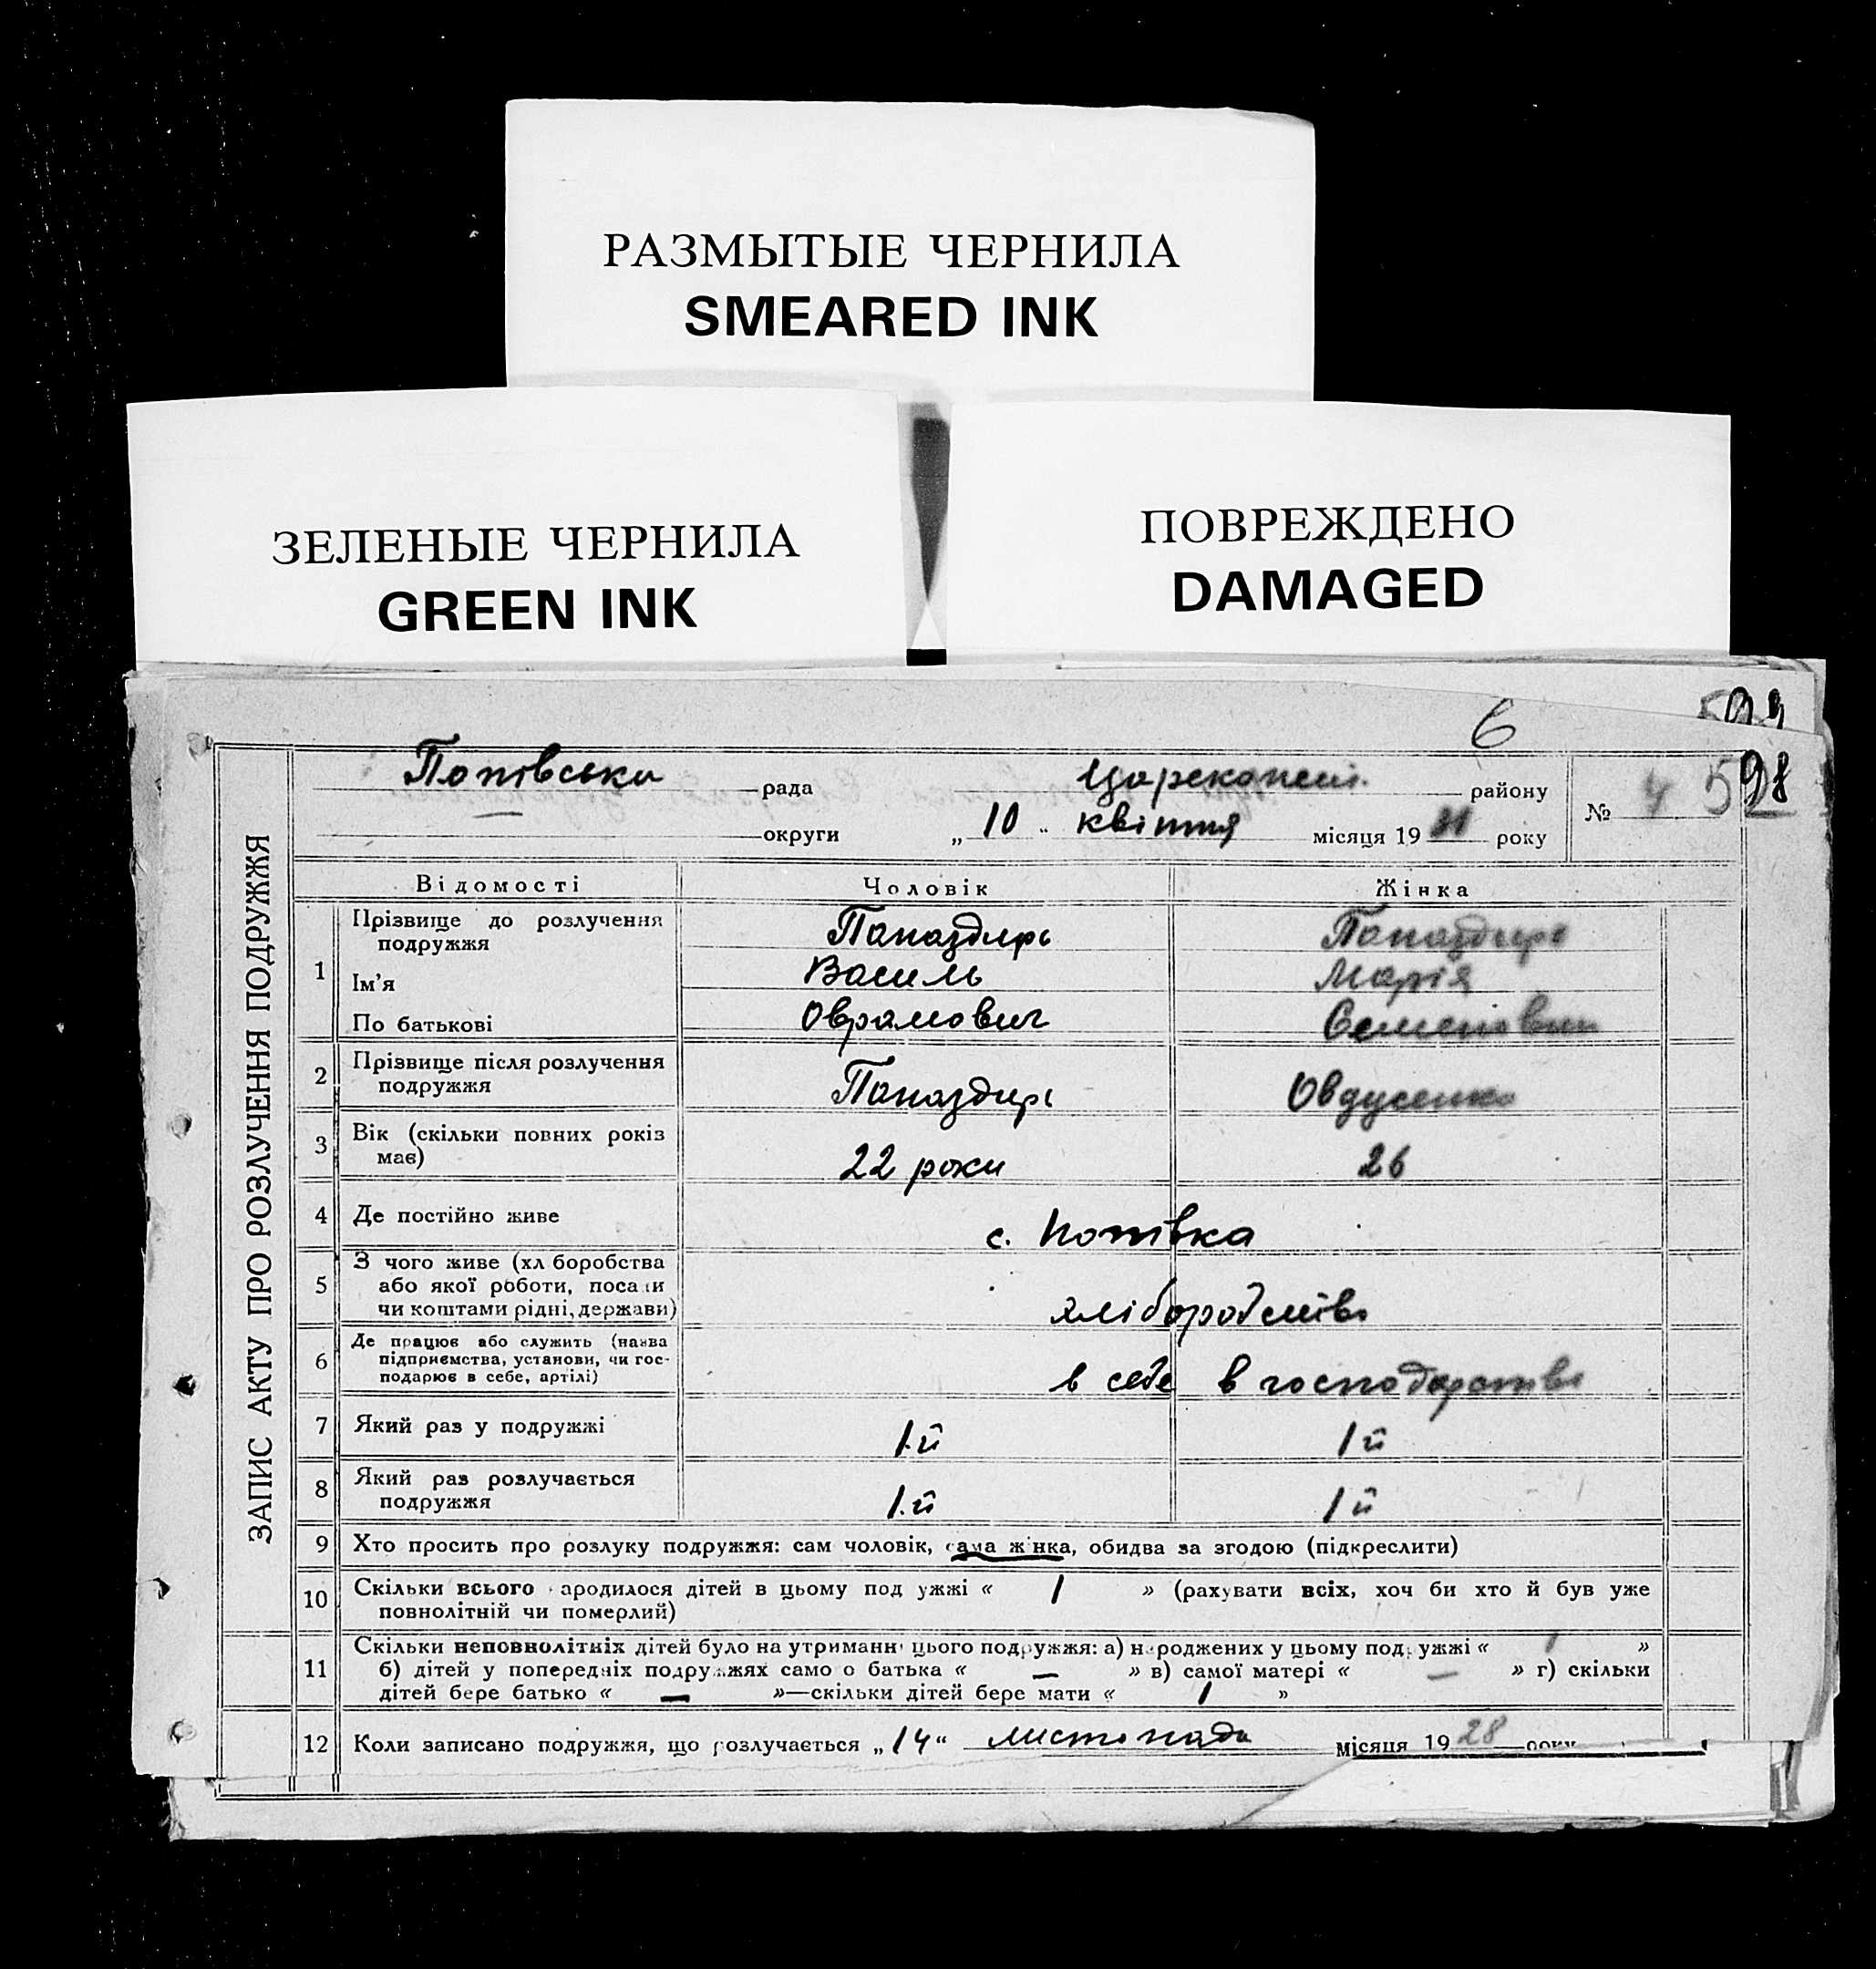 РАЗМЫТЫЕ ЧЕРНИЛА
SMEARED INK
ЗЕЛЕНЫЕ ЧЕРНИЛА
GREEN INK
ПОВРЕЖДЕНО
DAMAGED
6
599
598
ЗАПИС АКТУ ПРО РОЗЛУЧЕННЯ ПОДРУЖЖЯ
Попівська рада району
округи „ 10 " квітня місяця 19 31 року
№ 4
Відомості Чоловік Жінка
1 Прізвище до розлучення
подружжя Папаздирь Папаздирь
Ім'я Василь Марія
По батькові Оврамович
2 Прізвище після розлучення
подружжя Папаздирь Овдусенко
3 Вік (скільки повних рокіз
має) 22 роки 26
4 Де постійно живе с. Попівка
5 З чого живе (хл боробства
або якої роботи, поса и
чи коштами рідні, держави)
6 Де працює або служить (назва
підприємства, установи, чи гос-
подарює в себе, артілі) в себе в господарстві
7 Який раз у подружжі 1.й 1й
8 Який раз розлучається
подружжя 1.й 1й
9 Хто просить про розлуку подружжя: сам чоловік, сама жінка, обидва за згодою (підкреслити)
10 Скільки всього ародилося дітей в цьому под ужжі « 1 » (рахувати всіх, хоч би хто й був уже
повнолітній чи померлий)
11 Скільки неповнолітніх дітей було на утриманн цього подружжя: а) народжених у цьому подружжі « 1 »
б) дітей у попередніх подружжях само о батька « — » в) самої матері « — » г) скільки
дітей бере батько « — »—скільки дітей бере мати « 1 »
12 Коли записано подружжя, що розлучається „ 14 " листопада місяця 19 28 року